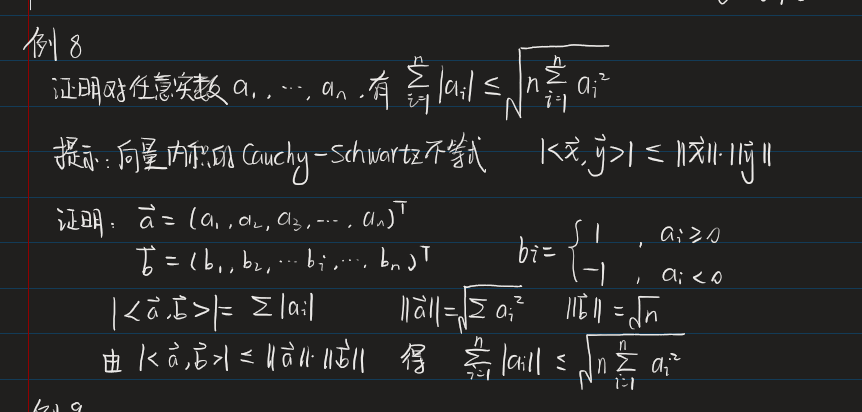 例8
证明对任意实数 a₁, ⋯, aₙ, 有 $\sum_{i=1}^{n} |a_i| \le \sqrt{n \sum_{i=1}^{n} a_i^2}$
提示: 向量内积的 Cauchy-Schwartz不等式 $|<\vec{x}, \vec{y}>| \le \|\vec{x}\| \cdot \|\vec{y}\|$
证明: $\vec{a} = (a_1, a_2, a_3, \cdots, a_n)^T$
$\vec{b} = (b_1, b_2, \cdots b_i, \cdots, b_n)^T$ $b_i = \begin{cases} 1, & a_i \ge 0 \\ -1, & a_i < 0 \end{cases}$
$|<\vec{a}, \vec{b}>| = \sum |a_i|$ $\|\vec{a}\| = \sqrt{\sum a_i^2}$ $\|\vec{b}\| = \sqrt{n}$
由 $|<\vec{a}, \vec{b}>| \le \|\vec{a}\| \cdot \|\vec{b}\|$ 得 $\sum_{i=1}^{n} |a_i| \le \sqrt{n \sum_{i=1}^{n} a_i^2}$